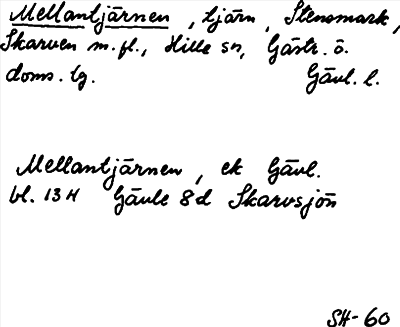 Mellantjärnen, tjärn, Stensmark,
Skarven m.fl., Hille sn, Gästr. ö.
doms. lg. Gävl. l.
Mellantjärnen, ek Gävl.
bl. 13H Gävle 8d Skarvsjön
SH-60